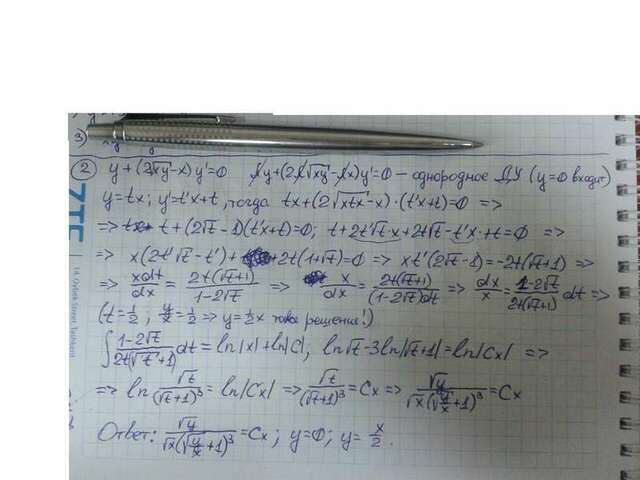 3)
② y+(2√xy-x)y'=0 λy+(2λ√xy-λx)y'=0 – однородное ДУ (y=0 входит)
y=tx; y'=t'x+t, тогда tx+(2√xtx-x)·(t'x+t)=0 =>
=> t+(2√t-1)(t'x+t)=0; t+2t'√t·x+2t√t-t'x-t=0 =>
=> x(2t'√t-t')+2t(1+√t)=0 => xt'(2√t-1)=-2t(√t+1) =>
=> xdt/dx = 2t(√t+1)/1-2√t => x/dx = 2t(√t+1)/(1-2√t)dt => dx/x = 1-2√t/2t(√t+1) dt =>
(t=1/2; y/x=1/2 => y=1/2x тоже решение!)
∫ 1-2√t/2t(√t+1) dt = ln|x|+ln|C|; ln√t-3ln|√t+1|=ln|Cx| =>
=> ln √t/(√t+1)³ = ln|Cx| => √t/(√t+1)³ = Cx => √y/√x(√y/x+1)³ = Cx
Ответ: √y/√x(√y/x+1)³ = Cx; y=0; y=x/2.
ZTE